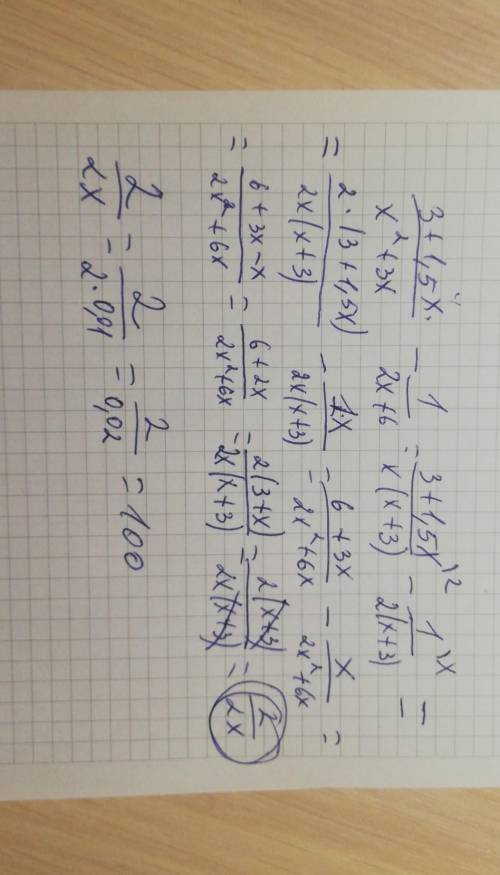 (3+1,5x)/(x²+3x) - 1/(2x+6) = (3+1,5x)/(x(x+3)) \2 - 1/(2(x+3)) \x =
= (2·(3+1,5x))/(2x(x+3)) - (1·x)/(2x(x+3)) = (6+3x)/(2x²+6x) - x/(2x²+6x) =
= (6+3x-x)/(2x²+6x) = (6+2x)/(2x²+6x) = (2(3+x))/(2x(x+3)) = (2(x+3))/(2x(x+3)) = 2/(2x)
2/(2x) = 2/(2·0,01) = 2/(0,02) = 100